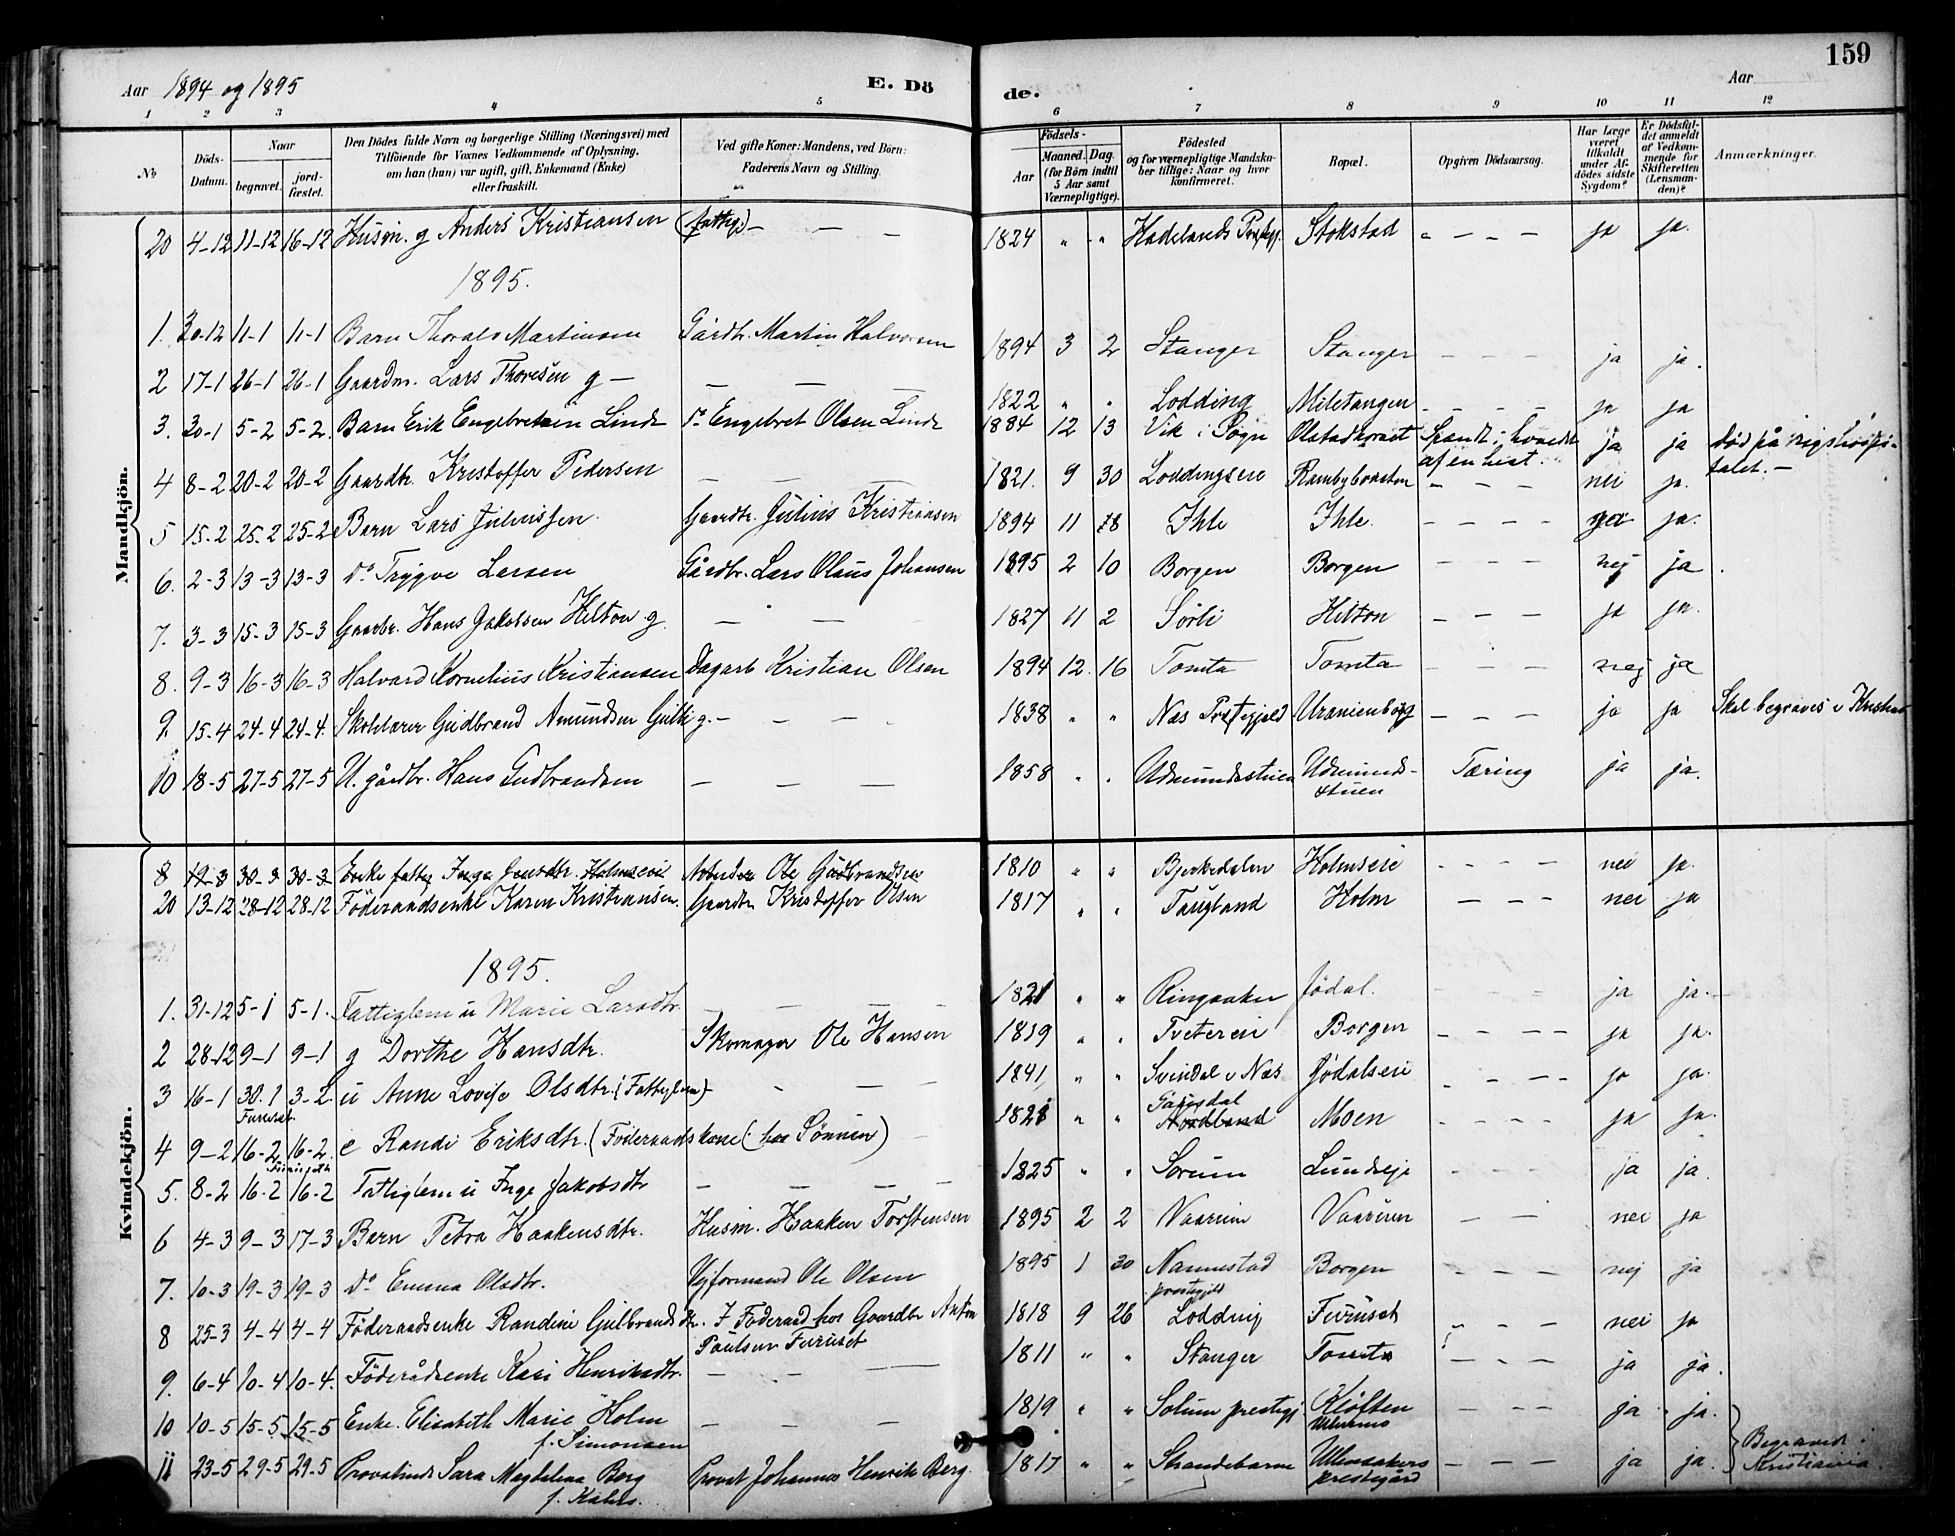 159
Aar 1894 og 1895 E. Dö de. Aar
1 2 3 4 5 6 7 8 9 10 11 12
No Döds-Datum. Naar begravet. jordfæstet. Den Dödes fulde Navn og borgerlige Stilling (Næringsvei) med Tilföiende for Voxnes Vedkommende af Oplysning, om han (hun) var ugift, gift, Enkemand (Enke) eller fraskilt. Ved gifte Koner: Mandens, ved Börn: Faderens Navn og Stilling. Födsels- Aar Maaned. Dag. (for Börn indtil 5 Aar samt Værnepligtige). Födested og for værnepligtige Mandskaber tillige: Naar og hvor konfirmeret. Bopæl. Opgiven Dödsaarsag. Har Læge været tilkaldt under Afdödes sidste Sygdom? Er Dödsfaldet anmeldt af Vedkommende for Skifteretten (Lensmanden)? Anmærkninger.
Mandkjön.
20 4-12 11-12 16-12 Husm. g Anders Kristiansen (fattig) — — — 1824 " " Hadelands Stokstad - - - - ja ja.
1895.
1. 30-12 11-1 11-1 Barn Thorals Martinsen Gårdbr. Martin Halvorsen 1894 3 2 Stanger Stanger - - - ja ja.
2 17-1 26-1 26-1 Gaardm. Lars Thoresen g — — — — 1822 " " Lodding Miletangen - - - - ja ja
3. 30-1 5-2 5-2. Barn Erik Engebretsen Linde do Engebret Olsen Linde 1884 12 13 Vik i Sogn Olstadkornet Spændt i hovedet af en hest. ja ja Død på rigshospitalet. —
4 8-2 20-2 20-2 Gaardbr. Kristoffer Pedersen — — — 1821. 9 30 Loddingseie Rambybraaten - - - - nei ja.
5 15-2 25-2 25-2 Barn Lars Juliussen. Gaardbr. Julius Kristiansen 1894 11 Ihle Ihle. - - - - ja.
6. 2-3 13-3 13-3 Do Trygve Larsen Gårdbr. Lars Olaus Johansen 1895 2 10 Borgen Borgen - - - - nej ja.
7. 3-3 15-3 15-3 Gaarbr. Hans Jakobsen Hilton g. — — — 1827 11 2 Sörli Hilton - - - - ja ja.
8. 9-3 16-3 16-3 Halvard Kornelius Kristiansen Dagarb Kristian Olsen 1894 12. 16 Tomta Tomta - - - nej ja
9. 15-4 24-4 24-4. Skolelærer Gudbrand Amundsen g. — — — 1838 " " Næs Prestegjeld Uranienborg - - - ja ja Skal begraves i
10 18-5 27-5 27-5 U. gårdbr. Hans Gudbrandsen — — — 1858 " " Udmundsstuen Udmunds-stuen Tæring ja ja.
Kvindekjön.
8 19-3 30-3 30-3 Enke fattig Inge Jensdtr. Holmseie Ole Gudbrandsen 1810 " " Bjerkedalen Holmseie - - - - nei ja.
20 13-12 28-12 28-12 Föderaadsenke Karen Kristiansen. Gaardbr Kristoffer Olsen 1817 " " Taugland Holm - - - nei ja
1895.
1. 31-12 5-1 5-1. Fattiglem u Marie Larsdtr. — — — — 1821 " " Ringsaker Jödal. - - - ja ja.
2 28-12 9-1 9-1 g Dorthe Hansdtr. Skomager Ole Hansen 1819 " " Tveterei Borgen - - - - ja ja.
3 16-1 30-1 Furuset. 3-2. u Anne Lovise Olsdtr. (Fattiglem) - - — — 1841 " " Svindal i Næs Jödalseie - - - - ja ja.
4 9-2 16-2 16-2. e Randi Eriksdtr. (Föderaadskone (hos Sönnen) — 1821 " " Moen ja ja.
5. 8-2 16-2 16-2 Fattiglem u Inge Jakobsdtr — — — — 1825 " " Sorum Lundseje - - - - ja ja.
6 4-3 9-3 17-3 Barn Petra Haakensdtr. Husm. Haaken Torstensen 1895 2 2 Vaarum Vaarum - - nei ja
7. 10-3 19-3 19-3 Do Emma Olsdtr. Vejformand Ole Olsen 1895 1 30 Nannestad prestegjeld Borgen - - - nej ja
8 25-3 4-4 4-4 Föderaadsenke Randine Gulbrandsdtr. I Föderaad hos Gaardbr Anton Paulsen Furuset 1818 9 26 Lodding Furuset - - - nei ja
9. 6-4 10-4 10-4. Föderådsenke Kari Henriksdtr. — — — 1811 " " Stanger Tomta - - - ja ja.
10 10-5 15-5 15-5 Enke. Elisabeth Marie Holm f. Simonsen — — — 1819 " " Solum prestegj Klöften - - - ja ja.
11 23-5 29-5 29-5 Provstinde Sara Magdalena Berg Provst Johannes Henrik Berg. 1817 " " Strandebarm Ullensakers prestegård - - - ja ja. Begravede i Kristiania.